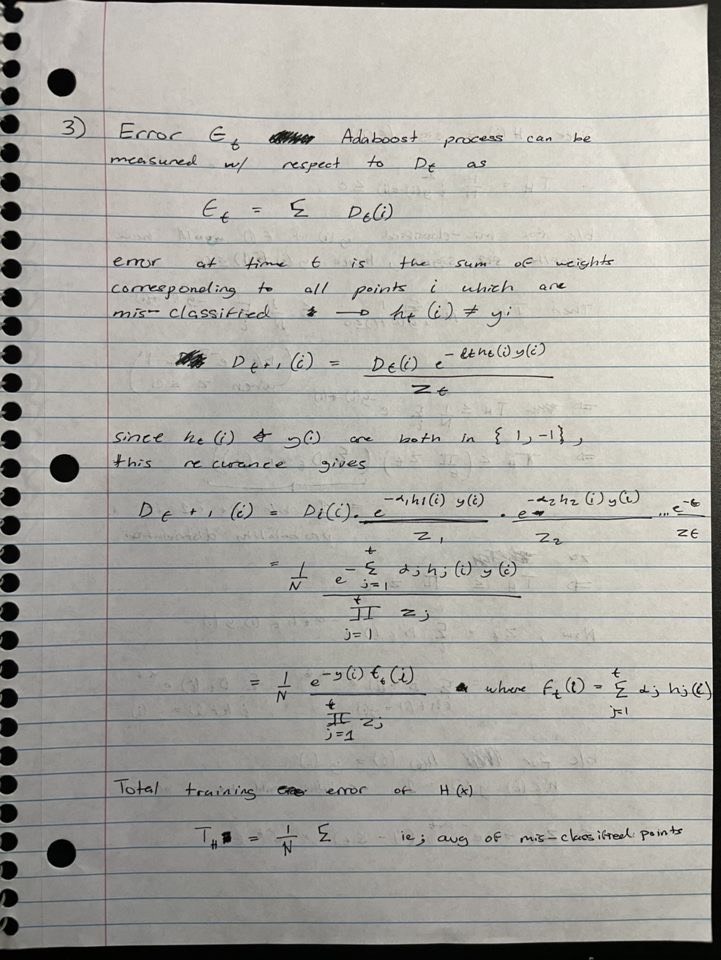 3) Error ϵₜ Adaboost process can be
measured w/ respect to Dₜ as
ϵₜ = Σ Dₜ(i)
error at time t is the sum of weights
corresponding to all points i which are
mis-classified → hₜ(i) ≠ yi
Dₜ₊₁(i) = Dₜ(i) e^{-αₜhₜ(i)y(i)} / Zₜ
since hₜ(i) & y(i) are both in {1, -1},
this recurance gives
Dₜ₊₁(i) = D₁(i) · e^{-α₁h₁(i) y(i)} / Z₁ · e^{-α₂h₂(i)y(i)} / Z₂ ... e^{-t} / Zt
= 1/N e^{-Σ_{j=1}^{t} αj hj(i) y(i)} / ∏_{j=1}^{t} Zj
= 1/N e^{-y(i) fₜ(i)} / ∏_{j=1}^{t} Zj where fₜ(i) = Σ_{j=1}^{t} αj hj(i)
Total training error of H(x)
T_H = 1/N Σ ie; avg of mis-classified points